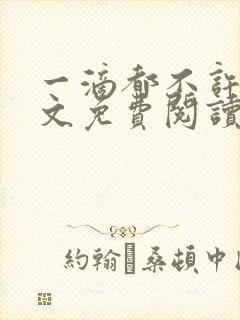 一滴都不許
文免費閱讀
約翰·桑頓中